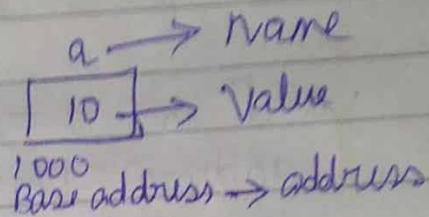 a → Name
10 → Value
1000
Base address → address